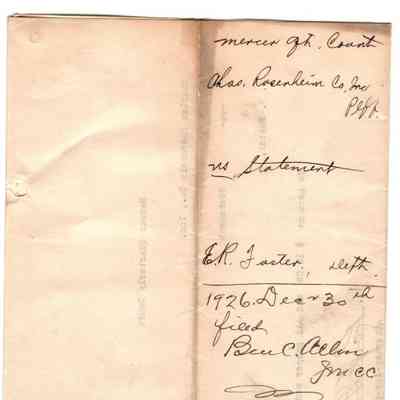 Mercer Qtr. Court
Chas. Rosenheim Co, Inc
Plff.
vs Statement
E.R. Foster, Deft.
1926. Decr 30th
filed
Ben C. Allin
JMCC